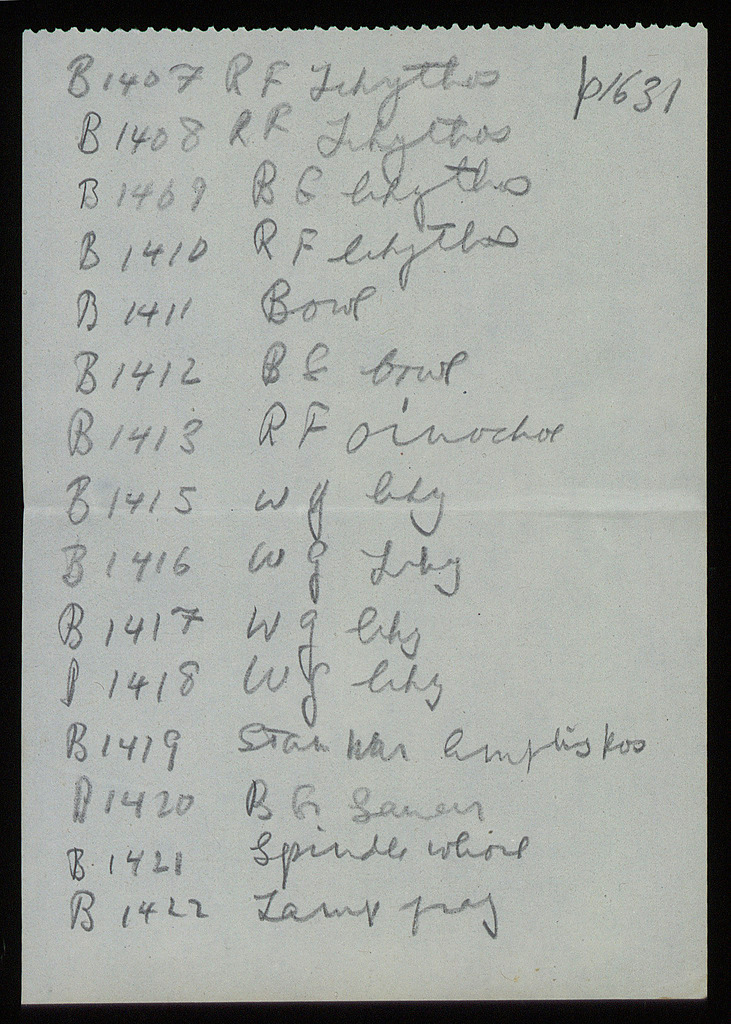 B 1407 R F Lekythos p1631
B 1408 R F Lekythos
B 1409 B G lekythos
B 1410 R F lekythos
B 1411 Bowl
B 1412 B G bowl
B 1413 R F oinochoe
B 1415 W g leky
B 1416 W g Leky
B 1417 W g leky
B 1418 W g leky
B 1419
B 1420 B G Saucer
B 1421 Spindle whorl
B 1422 Lamp frag